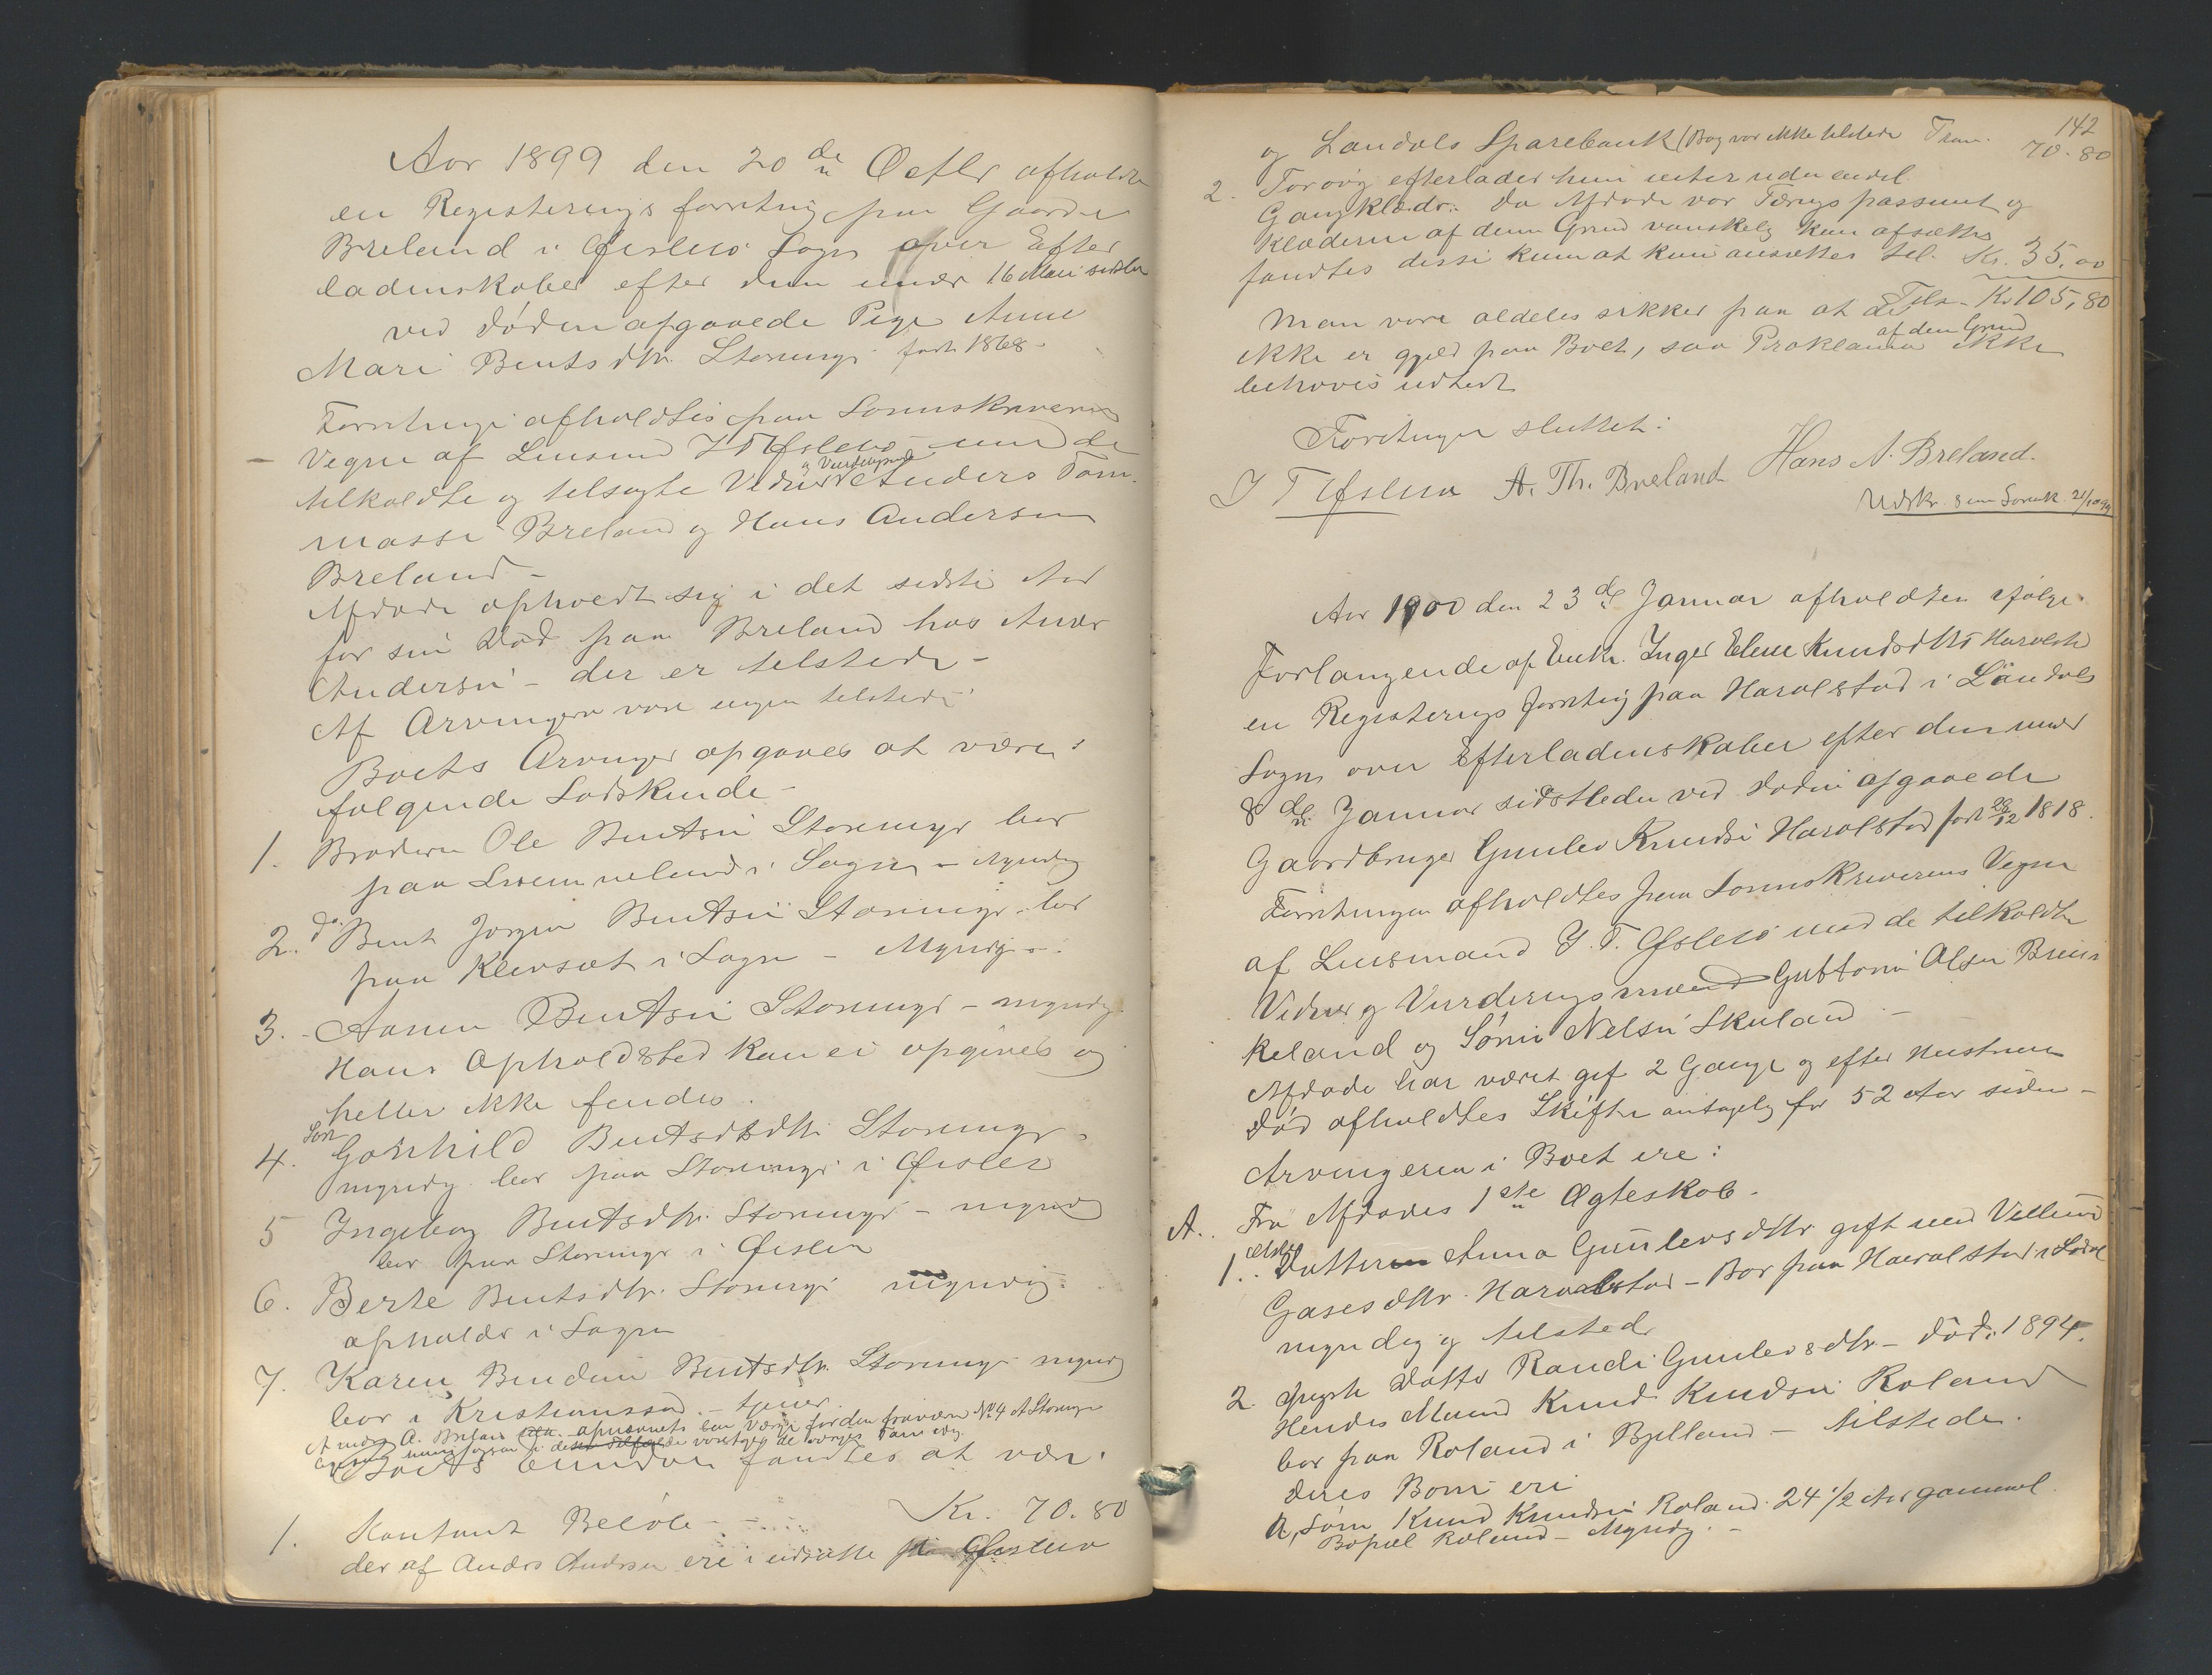 Aar 1899 den 20de Octbr afholdtes
en Registerings forretnig paa Gaarden
Breland i Øislebø Sogn over Efter
ladenskaber efter den under 16 Mai sidstl
ved døden afgaaede Pige Anne
Mari Bentsdtr. Storemyr født 1868.
Forretninge afholdtes paa Sorenskriverens
Vegne af Lensmd J T Øslebø med de
tilkaldte og tilsagte Vidner og Vurdergsmd Anders Tom
massen Breland og Hans Andersen
Breland -
Afdøde opholdt sig i det sidste Aar
før sin Død paa Breland hos Anders
Andersen - der er tilstede -
Af Arvingern vare ingen tilstede
Boets Arvinger opgaves at være:
følgende Sødskende -
1. Broderen Ole Bentsen Storemyr bor
paa i Sogne - Myndig
2. do. Bent Jørgen Bentsen Storemyr - bor
paa Klevsæt i Sogne - Myndig -
3. - Aanen Bentsen Storemyr - myndig
Hans Opholdsted kan ei opgives og
heller ikke findes.
4. Gonhild Bentsdtr. Storemyr
myndig bor paa Storemyr i Øisleb
5 Ingeborg Bentsdtr. Storemyr - myndig
bor paa Storemyr i Øisleb
6. Berte Bentsdtr. Storemyr myndig.
opholder i Sogne
7. Karen Bentsdtr. Storemyr myndig
bor i Kristianssand. - tjener.
Anders A. Breland opnævnt som Værge for den fraværende No 4 A Storemyr
Boets Eiendom fandtes at være:
1. Kontant Beløb - - Kr. 70.80
der af Anders Andersen ere indsatte paa Øislebø
142
og Laudals Sparebank (Bog var ikke tilstede Tran. 70.80
2. Forøvrig efterlader hun intet uden endel
Gangklæder. Da Afdøde var Tærings passient og
Klæderne af denne Grund vanskelig kan afsættes
fandtes disse kun at kunne ansættes til. Kr. 35,00
Tils. Kr 105,80
Man vare aldeles sikker paa at der
ikke er gjeld paa Boet, saa Proklama af den Grund ikke
behøves udstedt
Forretningen sluttet:
J T Øslebø A. Th. Breland Hans A. Breland.
Udskr. Sorensk. 21/10 99
Aar 1900 den 23de Januar afholdtes ifølge
Forlangende af Enke. Inger Elene Knudsdtr Haralst
en Registerings forretnig paa Haralstad i Laudals
Sogn over Efterladenskaber efter den under
8de Januar sidstleden ved døden afgaaede
Gaardbruger Gunlev Knudsen Haralstad født 29/12 1818.
Forretningen afholdtes paa Sorenskriverens Vegne
af Lensmand J. T. Øslebø med de tilkaldte
Vidner og Vurderingsmænd Guttorm Olsen Breie
keland og Søren Nelsen Skuland -
Afdøde har været gif 2 Gange og efter Hustruens
død afholdtes Skifte antagelig for 52 Aar siden -
Arvingerne i Boet ere:
A. Fra Afdødes 1ste Ægteskab.
1. ældste Datter Anna Gunlevsdtr gift med Vellund
Gasesdttr. Haraalstad - Bor paa Haralstad i Lødal
myndig og tilstede
2. Yngste Datter Randi Gunlevsdtr - død 1894.
Hendes Mand Knud Knudsen Roland
bor paa Roland i Bjelland - tilstede.
deres Børn ere
a, Søn Knud Knudsen Roland 24 1/2 Aar gammel
Bopæl Roland - Myndig. -